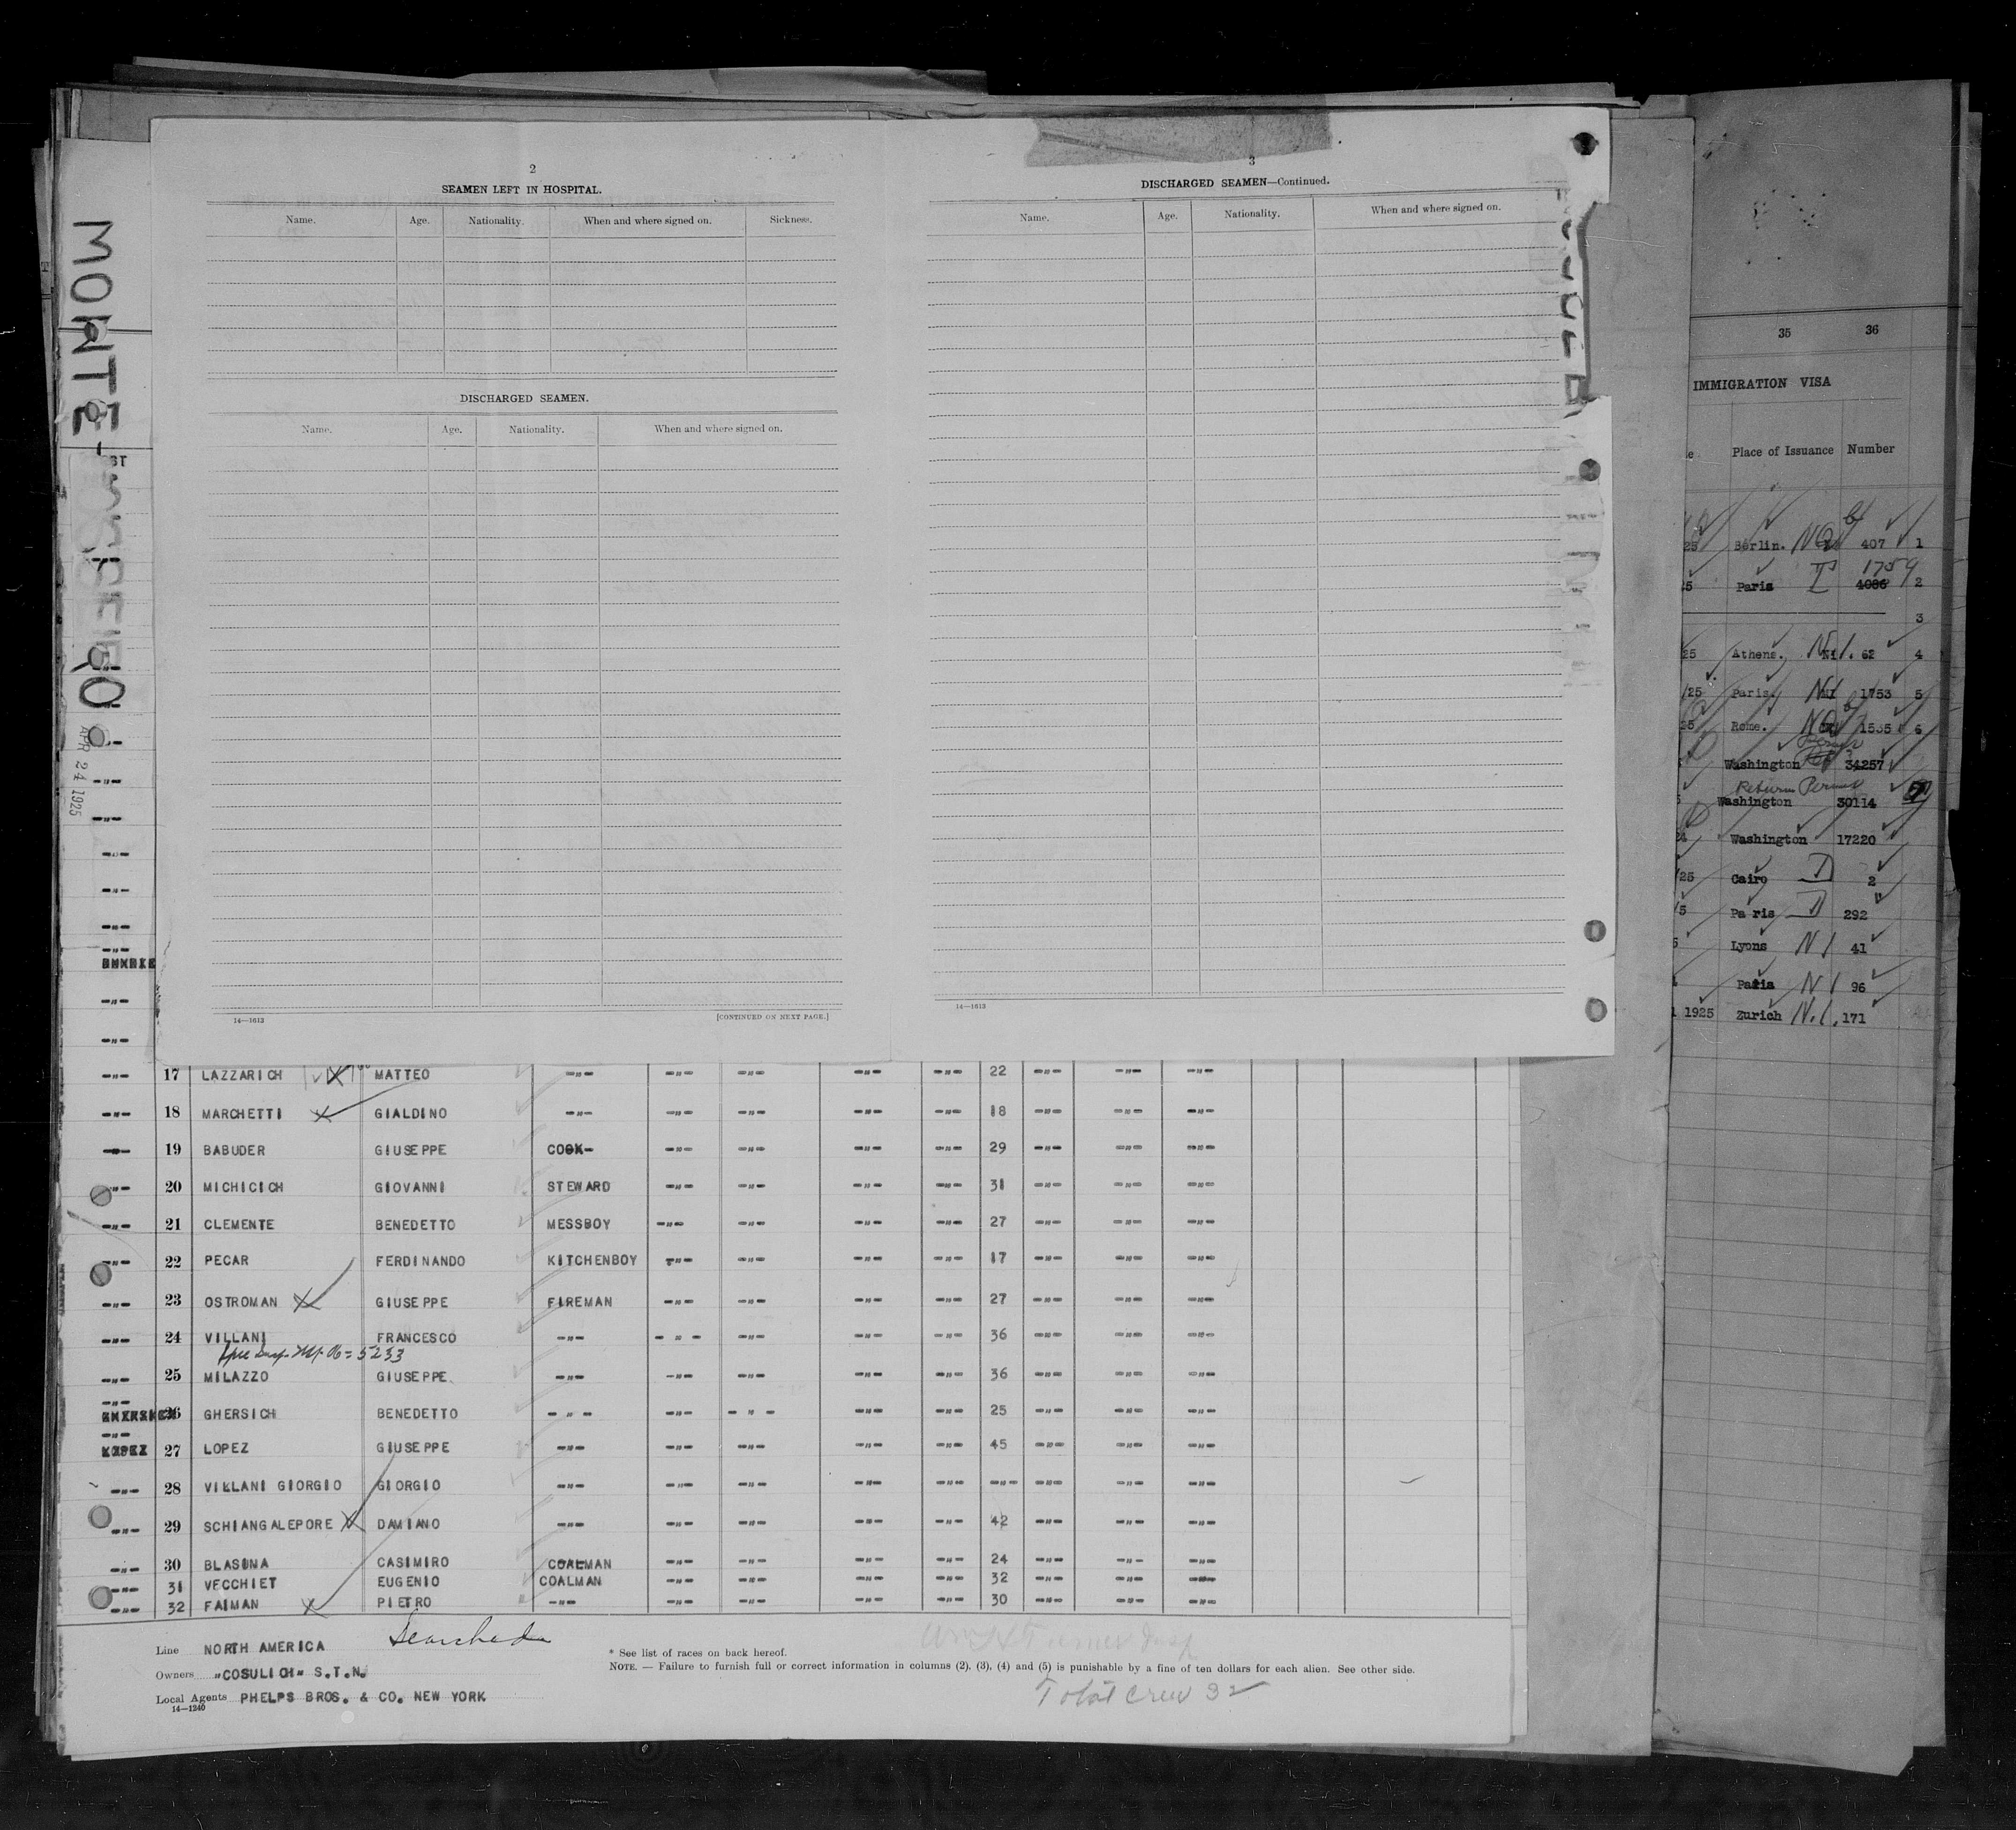 2
SEAMEN LEFT IN HOSPITAL.
Name. Age. Nationality. When and where signed on. Sickness.
DISCHARGED SEAMEN.
Name. Age. Nationality. When and where signed on.
14—1613 [CONTINUED ON NEXT PAGE.]
3
DISCHARGED SEAMEN—Continued.
Name. Age. Nationality. When and where signed on.
14—1613
MONTE
APR 24 1925
35 36
IMMIGRATION VISA
Place of Issuance Number
25 Berlin. 407 1
25 Paris 4086 1759 2
3
25 Athens. N1. 62 4
/25 Paris. 1753 5
25 Rome. 1535 6
Washington 34257
Return Permit
Washington 30114
24 Washington 17220
/25 Cairo D 2
Paris D 292
Lyons N1 41
Paris N1 96
1925 Zurich N.1. 171
-"- 17 LAZZARICH MATTEO -"- -"- -"- -"- -"- 22 -"- -"- -"-
-"- 18 MARCHETTI GIALDINO -"- -"- -"- -"- -"- 18 -"- -"- -"-
-"- 19 BABUDER GIUSEPPE COOK- -"- -"- -"- -"- 29 -"- -"- -"-
-"- 20 MICHICICH GIOVANNI STEWARD -"- -"- -"- -"- 31 -"- -"- -"-
-"- 21 CLEMENTE BENEDETTO MESSBOY -"- -"- -"- -"- 27 -"- -"- -"-
-"- 22 PECAR FERDINANDO KITCHENBOY -"- -"- -"- -"- 17 -"- -"- -"-
-"- 23 OSTROMAN GIUSEPPE FIREMAN -"- -"- -"- -"- 27 -"- -"- -"-
-"- 24 VILLANI FRANCESCO -"- - " - -"- -"- -"- 36 -"- -"- -"-
5233
-"- 25 MILAZZO GIUSEPPE. -"- -"- -"- -"- -"- 36 -"- -"- -"-
-"- 26 GHERSICH BENEDETTO - " - -"- - " - -"- -"- 25 -"- -"- -"-
-"- 27 LOPEZ GIUSEPPE -"- -"- -"- -"- -"- 45 -"- -"- -"-
-"- 28 VILLANI GIORGIO GIORGIO -"- -"- -"- -"- -"- -"- -"- -"- -"-
-"- 29 SCHIANGALEPORE DAMIANO -"- -"- -"- -"- -"- 42 -"- -"- -"-
-"- 30 BLASINA CASIMIRO COALMAN -"- -"- -"- -"- 24 -"- -"- -"-
-"- 31 VECCHIET EUGENIO COALMAN -"- -"- -"- -"- 32 -"- -"- -"-
-"- 32 FAIMAN PIETRO -"- -"- -"- -"- -"- 30 -"- -"- -"-
Line NORTH AMERICA Searched
Owners "COSULICH" S.T.N.
Local Agents PHELPS BROS. & CO. NEW YORK
14—1240
* See list of races on back hereof.
NOTE. — Failure to furnish full or correct information in columns (2), (3), (4) and (5) is punishable by a fine of ten dollars for each alien. See other side.
Total Crew 32